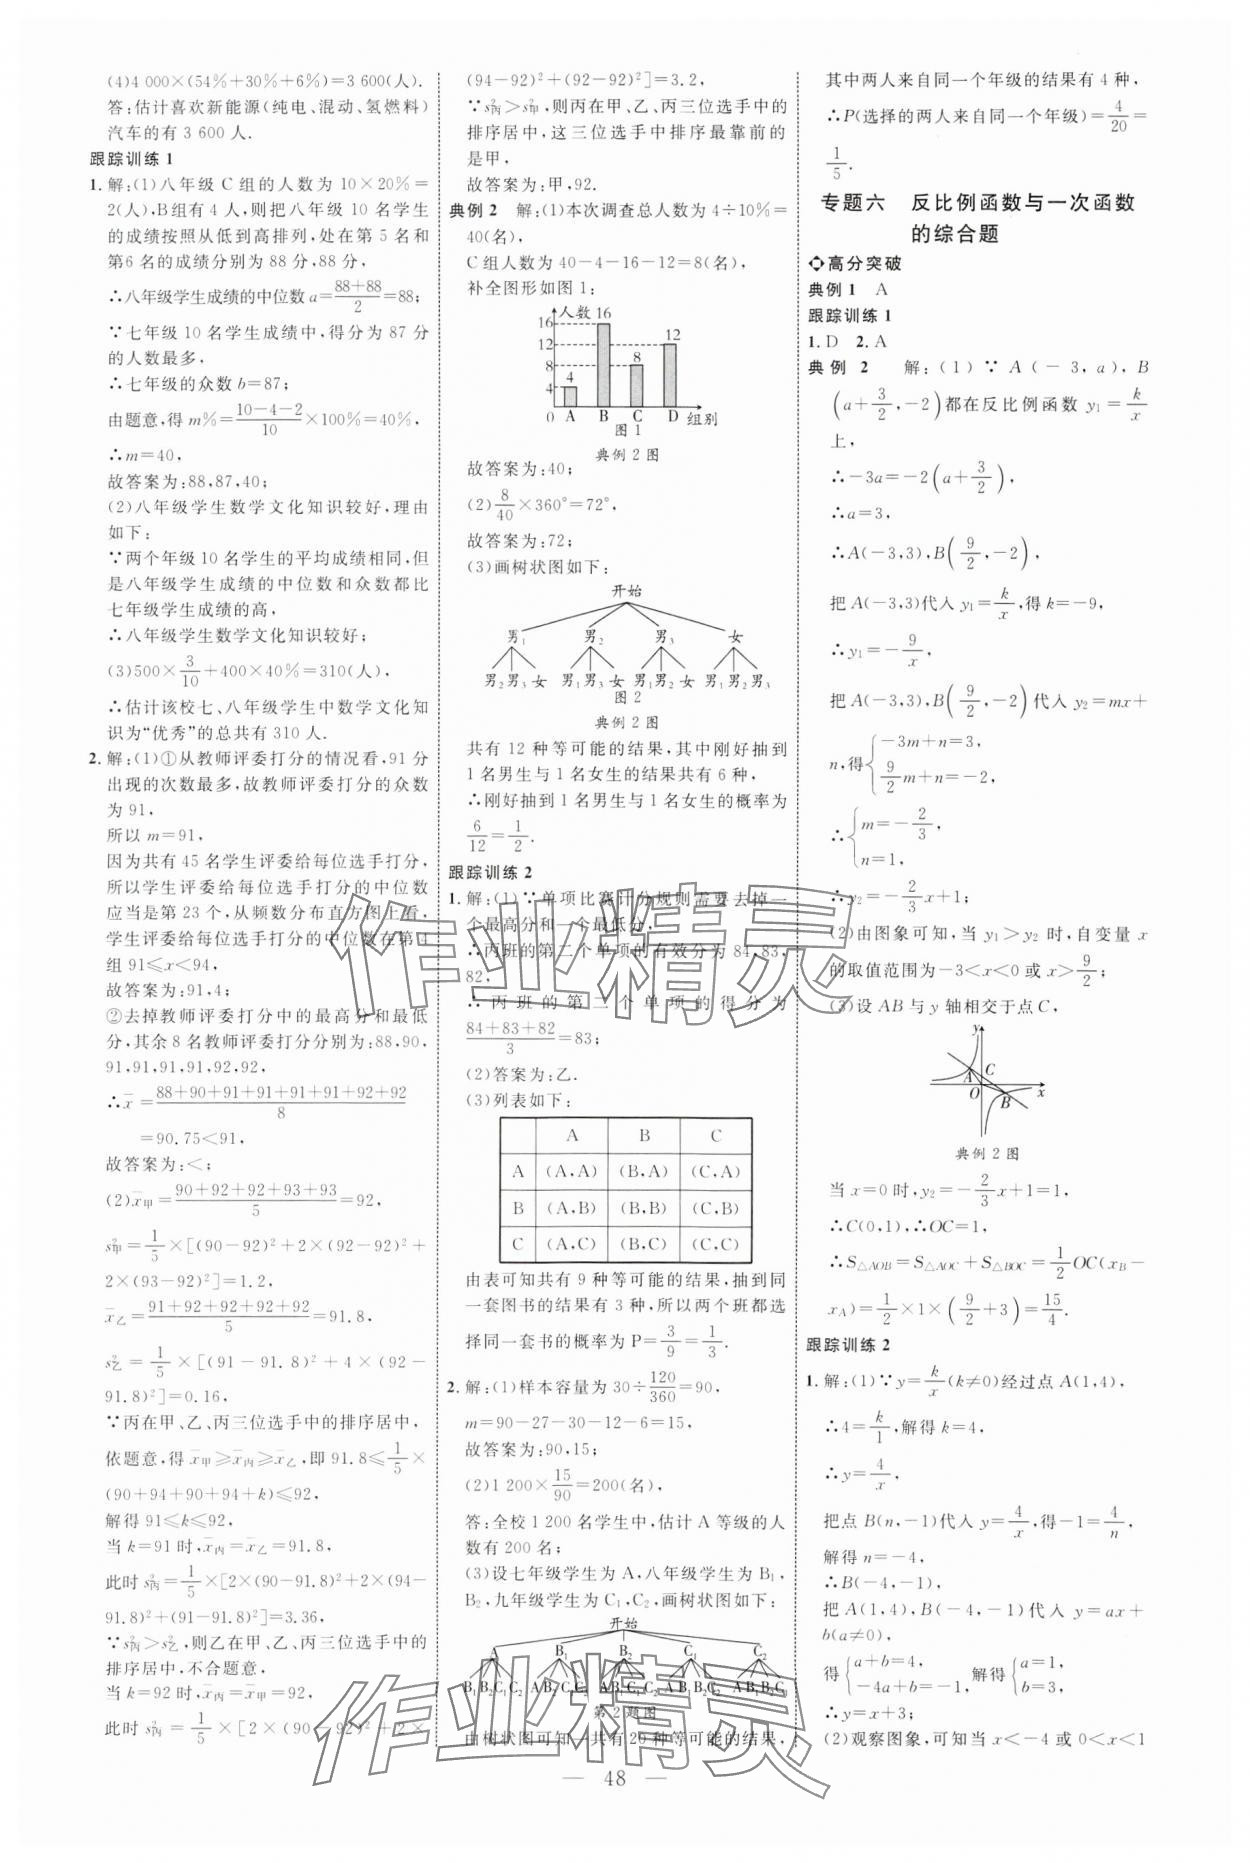 (4)4 000×(54%+30%+6%)=3 600(人).
答:估计喜欢新能源(纯电、混动、氢燃料)
汽车的有 3 600 人.
跟踪训练 1
1. 解:(1)八年级 C 组的人数为 10×20%=
2(人),B组有 4 人,则把八年级 10 名学生
的成绩按照从低到高排列,处在第 5 名和
第6 名的成绩分别为 88 分,88 分,
∴八年级学生成绩的中位数 a=(88+88)/2=88;
∵七年级 10 名学生成绩中,得分为 87 分
的人数最多,
∴七年级的众数 b=87;
由题意,得 m%=(10-4-2)/10×100%=40%,
∴m=40,
故答案为:88,87,40;
(2)八年级学生数学文化知识较好,理由
如下:
∵两个年级 10 名学生的平均成绩相同,但
是八年级学生成绩的中位数和众数都比
七年级学生成绩的高,
∴八年级学生数学文化知识较好;
(3)500×3/10+400×40%=310(人),
∴估计该校七、八年级学生中数学文化知
识为“优秀”的总共有 310 人.
2. 解:(1)①从教师评委打分的情况看,91 分
出现的次数最多,故教师评委打分的众数
为 91,
所以 m=91,
因为共有 45 名学生评委给每位选手打分,
所以学生评委给每位选手打分的中位数
应当是第 23 个,从频数分布直方图上看,
学生评委给每位选手打分的中位数在第4
组 91≤x<94,
故答案为:91,4;
②去掉教师评委打分中的最高分和最低
分,其余 8 名教师评委打分分别为:88,90,
91,91,91,91,92,92,
∴x̄=(88+90+91+91+91+91+92+92)/8
=90.75<91,
故答案为:<;
(2)x̄甲=(90+92+92+93+93)/5=92,
s²甲=1/5×[(90-92)²+2×(92-92)²+
2×(93-92)²]=1.2,
x̄乙=(91+92+92+92+92)/5=91.8,
s²乙=1/5×[(91-91.8)²+4×(92-
91.8)²]=0.16,
∵丙在甲、乙、丙三位选手中的排序居中,
依题意,得 x̄甲≥x̄丙≥x̄乙,即 91.8≤1/5×
(90+94+90+94+k)≤92,
解得 91≤k≤92,
当 k=91 时,x̄丙=x̄乙=91.8,
此时 s²丙=1/5×[2×(90-91.8)²+2×(94-
91.8)²+(91-91.8)²]=3.36,
∵s²丙>s²乙,则乙在甲、乙、丙三位选手中的
排序居中,不合题意,
当 k=92 时,x̄丙=x̄甲=92,
此时 s²丙=1/5×[2×(90-92)²+2×
(94-92)²+(92-92)²]=3.2,
∵s²丙>s²甲,则丙在甲、乙、丙三位选手中的
排序居中,这三位选手中排序最靠前的
是甲,
故答案为:甲,92.
典例 2 解:(1)本次调查总人数为 4÷10%=
40(名),
C 组人数为 40-4-16-12=8(名),
补全图形如图 1:
人数
16
12
8
4
0
4
16
8
12
A B C D 组别
图 1
典例 2 图
故答案为:40;
(2)8/40×360°=72°,
故答案为:72;
(3)画树状图如下:
开始
男1 男2 男3 女
男2男3 女 男1男3 女 男1男2 女 男1男2男3
图 2
典例 2 图
共有 12 种等可能的结果,其中刚好抽到
1 名男生与 1 名女生的结果共有 6 种,
∴刚好抽到 1 名男生与 1 名女生的概率为
6/12=1/2.
跟踪训练 2
1. 解:(1)∵单项比赛计分规则需要去掉一
个最高分和一个最低分,
∴丙班的第二个单项的有效分为 84,83,
82,
∴丙班的第二个单项的得分为
(84+83+82)/3=83;
(2)答案为:乙.
(3)列表如下:
A B C
A (A,A) (B,A) (C,A)
B (A,B) (B,B) (C,B)
C (A,C) (B,C) (C,C)
由表可知共有 9 种等可能的结果,抽到同
一套图书的结果有 3 种,所以两个班都选
择同一套书的概率为 P=3/9=1/3.
2. 解:(1)样本容量为 30÷120/360=90,
m=90-27-30-12-6=15,
故答案为:90,15;
(2)1 200×15/90=200(名),
答:全校 1 200 名学生中,估计 A 等级的人
数有 200 名;
(3)设七年级学生为 A,八年级学生为 B1,
B2,九年级学生为 C1,C2,画树状图如下:
开始
A B1 B2 C1 C2
B1B2C1C2 AB2C1C2 AB1C1C2 AB1B2C2 AB1B2C1
第 2 题图
由树状图可知一共有 20 种等可能的结果,
其中两人来自同一个年级的结果有 4 种,
∴P(选择的两人来自同一个年级)=4/20=
1/5.
专题六 反比例函数与一次函数
的综合题
高分突破
典例 1 A
跟踪训练 1
1. D 2. A
典例 2 解:(1)∵A(-3,a),B
(a+3/2,-2)都在反比例函数 y1=k/x
上,
∴-3a=-2(a+3/2),
∴a=3,
∴A(-3,3),B(9/2,-2),
把 A(-3,3)代入 y1=k/x,得 k=-9,
∴y1=-9/x,
把 A(-3,3),B(9/2,-2)代入 y2=mx+
n,得{-3m+n=3, 9/2m+n=-2,
∴{m=-2/3, n=1,
∴y2=-2/3x+1;
(2)由图象可知,当 y1>y2 时,自变量 x
的取值范围为-3<x<0 或 x>9/2;
(3)设 AB 与 y 轴相交于点 C,
y
A C
O B x
典例 2 图
当 x=0 时,y2=-2/3x+1=1,
∴C(0,1),∴OC=1,
∴S△AOB=S△AOC+S△BOC=1/2OC(xB-
xA)=1/2×1×(9/2+3)=15/4.
跟踪训练 2
1. 解:(1)∵y=k/x(k≠0)经过点 A(1,4),
∴4=k/1,解得 k=4,
∴y=4/x,
把点 B(n,-1)代入 y=4/x,得-1=4/n,
解得 n=-4,
∴B(-4,-1),
把 A(1,4),B(-4,-1)代入 y=ax+
b(a≠0),
得{a+b=4, -4a+b=-1, 解得{a=1, b=3,
∴y=x+3;
(2)观察图象,可知当 x<-4 或 0<x<1
— 48 —
作业精灵
作业精灵